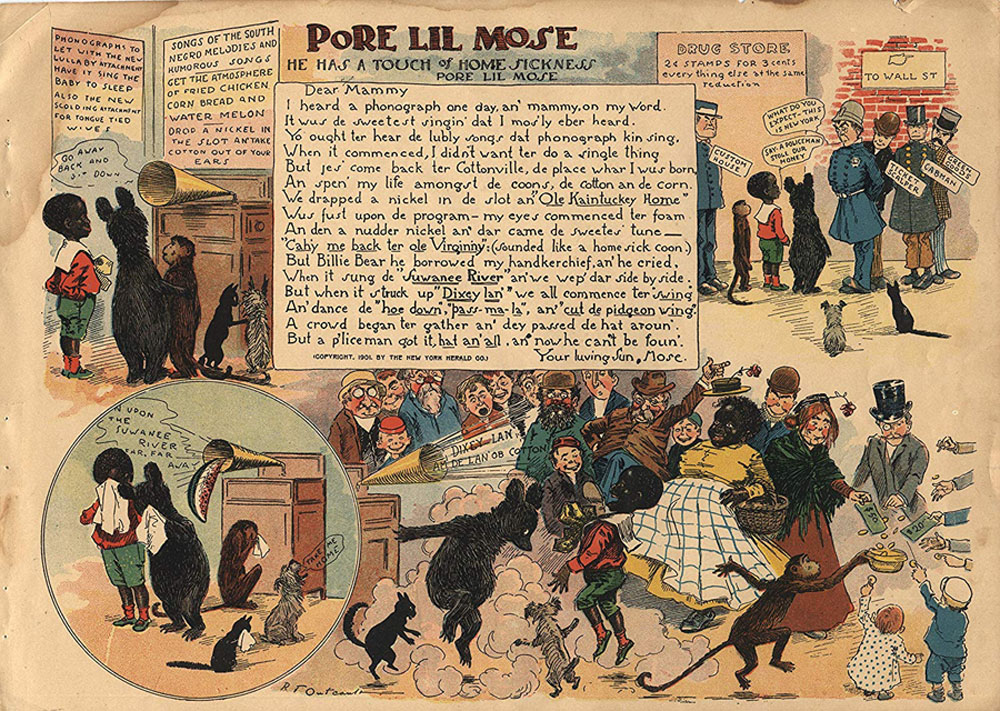 PORE LIL MOSE
HE HAS A TOUCH OF HOME SICKNESS
PORE LIL MOSE
PHONOGRAPHS TO
LET WITH THE NEW
LULLABY ATTACHMENT
HAVE IT SING THE
BABY TO SLEEP
ALSO THE NEW
SCOLDING ATTACHMENT
FOR TONGUE TIED
WIVES
SONGS OF THE SOUTH
NEGRO MELODIES AND
HUMOROUS SONGS
GET THE ATMOSPHERE
OF FRIED CHICKEN
CORN BREAD AND
WATER MELON
DROP A NICKEL IN
THE SLOT AN' TAKE
COTTON OUT OF YOUR
EARS
GO AWAY
BACK AND
SIT DOWN
Dear Mammy
I heard a phonograph one day, an' mammy, on my word.
It wus de sweetest singin' dat I mos'ly eber heard.
Yo ought ter hear de lubly songs dat phonograph kin sing,
When it commenced, I didn't want ter do a single thing
But jes' come back ter Cottonville, de place whar I wus born,
An spen' my life amongst de coons, de cotton an de corn.
We drapped a nickel in de slot an' "Ole Kaintuckey Home"
Wus fust upon de program - my eyes commenced ter foam
An den a nudder nickel an' dar came de sweetes' tune —
"Cahy me back ter ole Virginny": (sounded like a home sick coon.)
But Billie Bear he borrowed my handkerchief, an' he cried,
When it sung de "Suwanee River" an' we wep' dar side by side.
But when it struck up "Dixey lan'" we all commence ter swing
An' dance de "hoe down", "pass-ma-la", an' "cut de pidgeon wing."
A crowd began ter gather an' dey passed de hat aroun'.
But a p'liceman got it, hat an' all, an' now he can't be foun'.
(COPYRIGHT, 1901, BY THE NEW YORK HERALD CO.)
Your luving sun, Mose.
DRUG STORE
2¢ STAMPS FOR 3 cents
every thing else at the same
reduction
TO WALL ST
WHAT DO YOU
EXPECT - THIS
IS NEW YORK
SAY - A POLICEMAN
STOLL OUR
MONEY
CUSTOM
HOUSE
TICKET
SCALPER
CABMAN
GREEN
GOODS
N UPON
THE
SUWANEE
RIVER
FAR, FAR
AWAY
TAKE ME
HOME
DIXEY LAN'
AM DE LAN' OB COTTON
$20